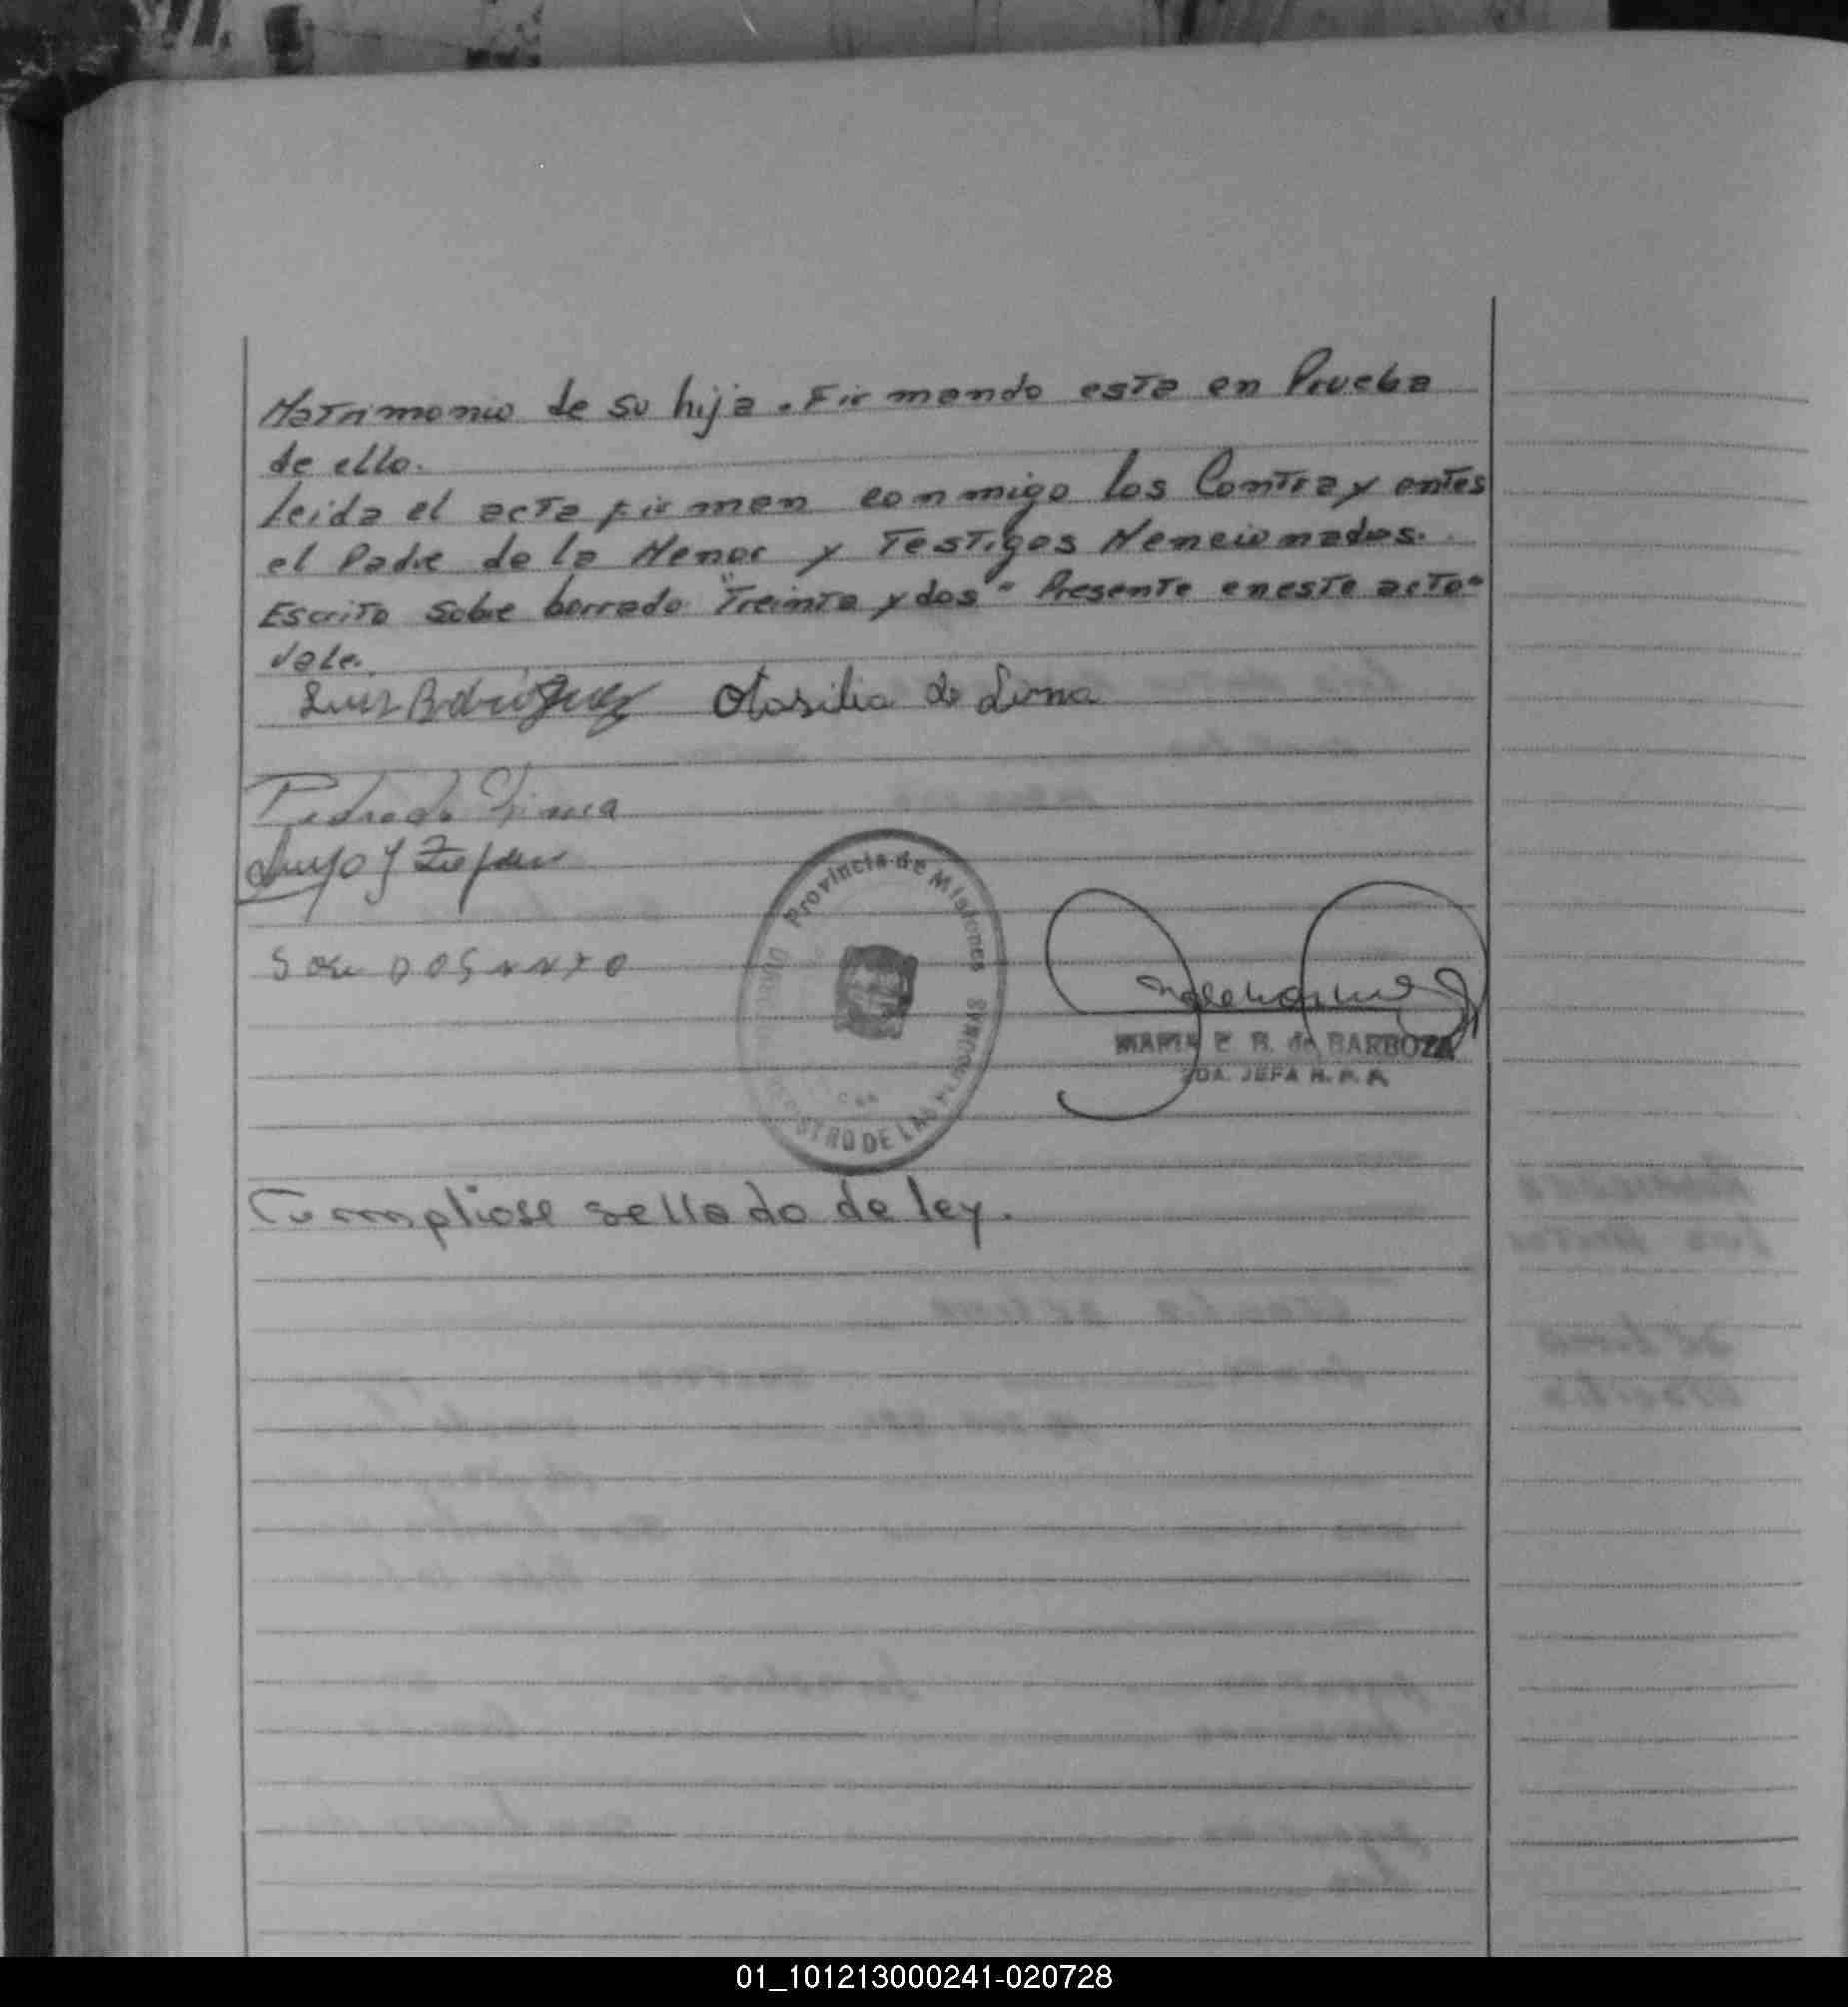 Matrimonio de su hija. Firmando esta en Prueba
de ello.
Leida el acta firman conmigo los Contrayentes
el Padre de la Menor y Testigos Mencionados.
Escrito sobre borrado "Treinta y dos" "Presente en este acto"
Vale.
Luis Rodriguez Otasilia de Lima
Pedro de Lima
Provincia de Misiones
REGISTRO DE LAS PERSONAS
MARIA E R. de BARBOZA
2DA. JEFA R. P. P.
Cumpliose sellado de ley.
01_101213000241-020728